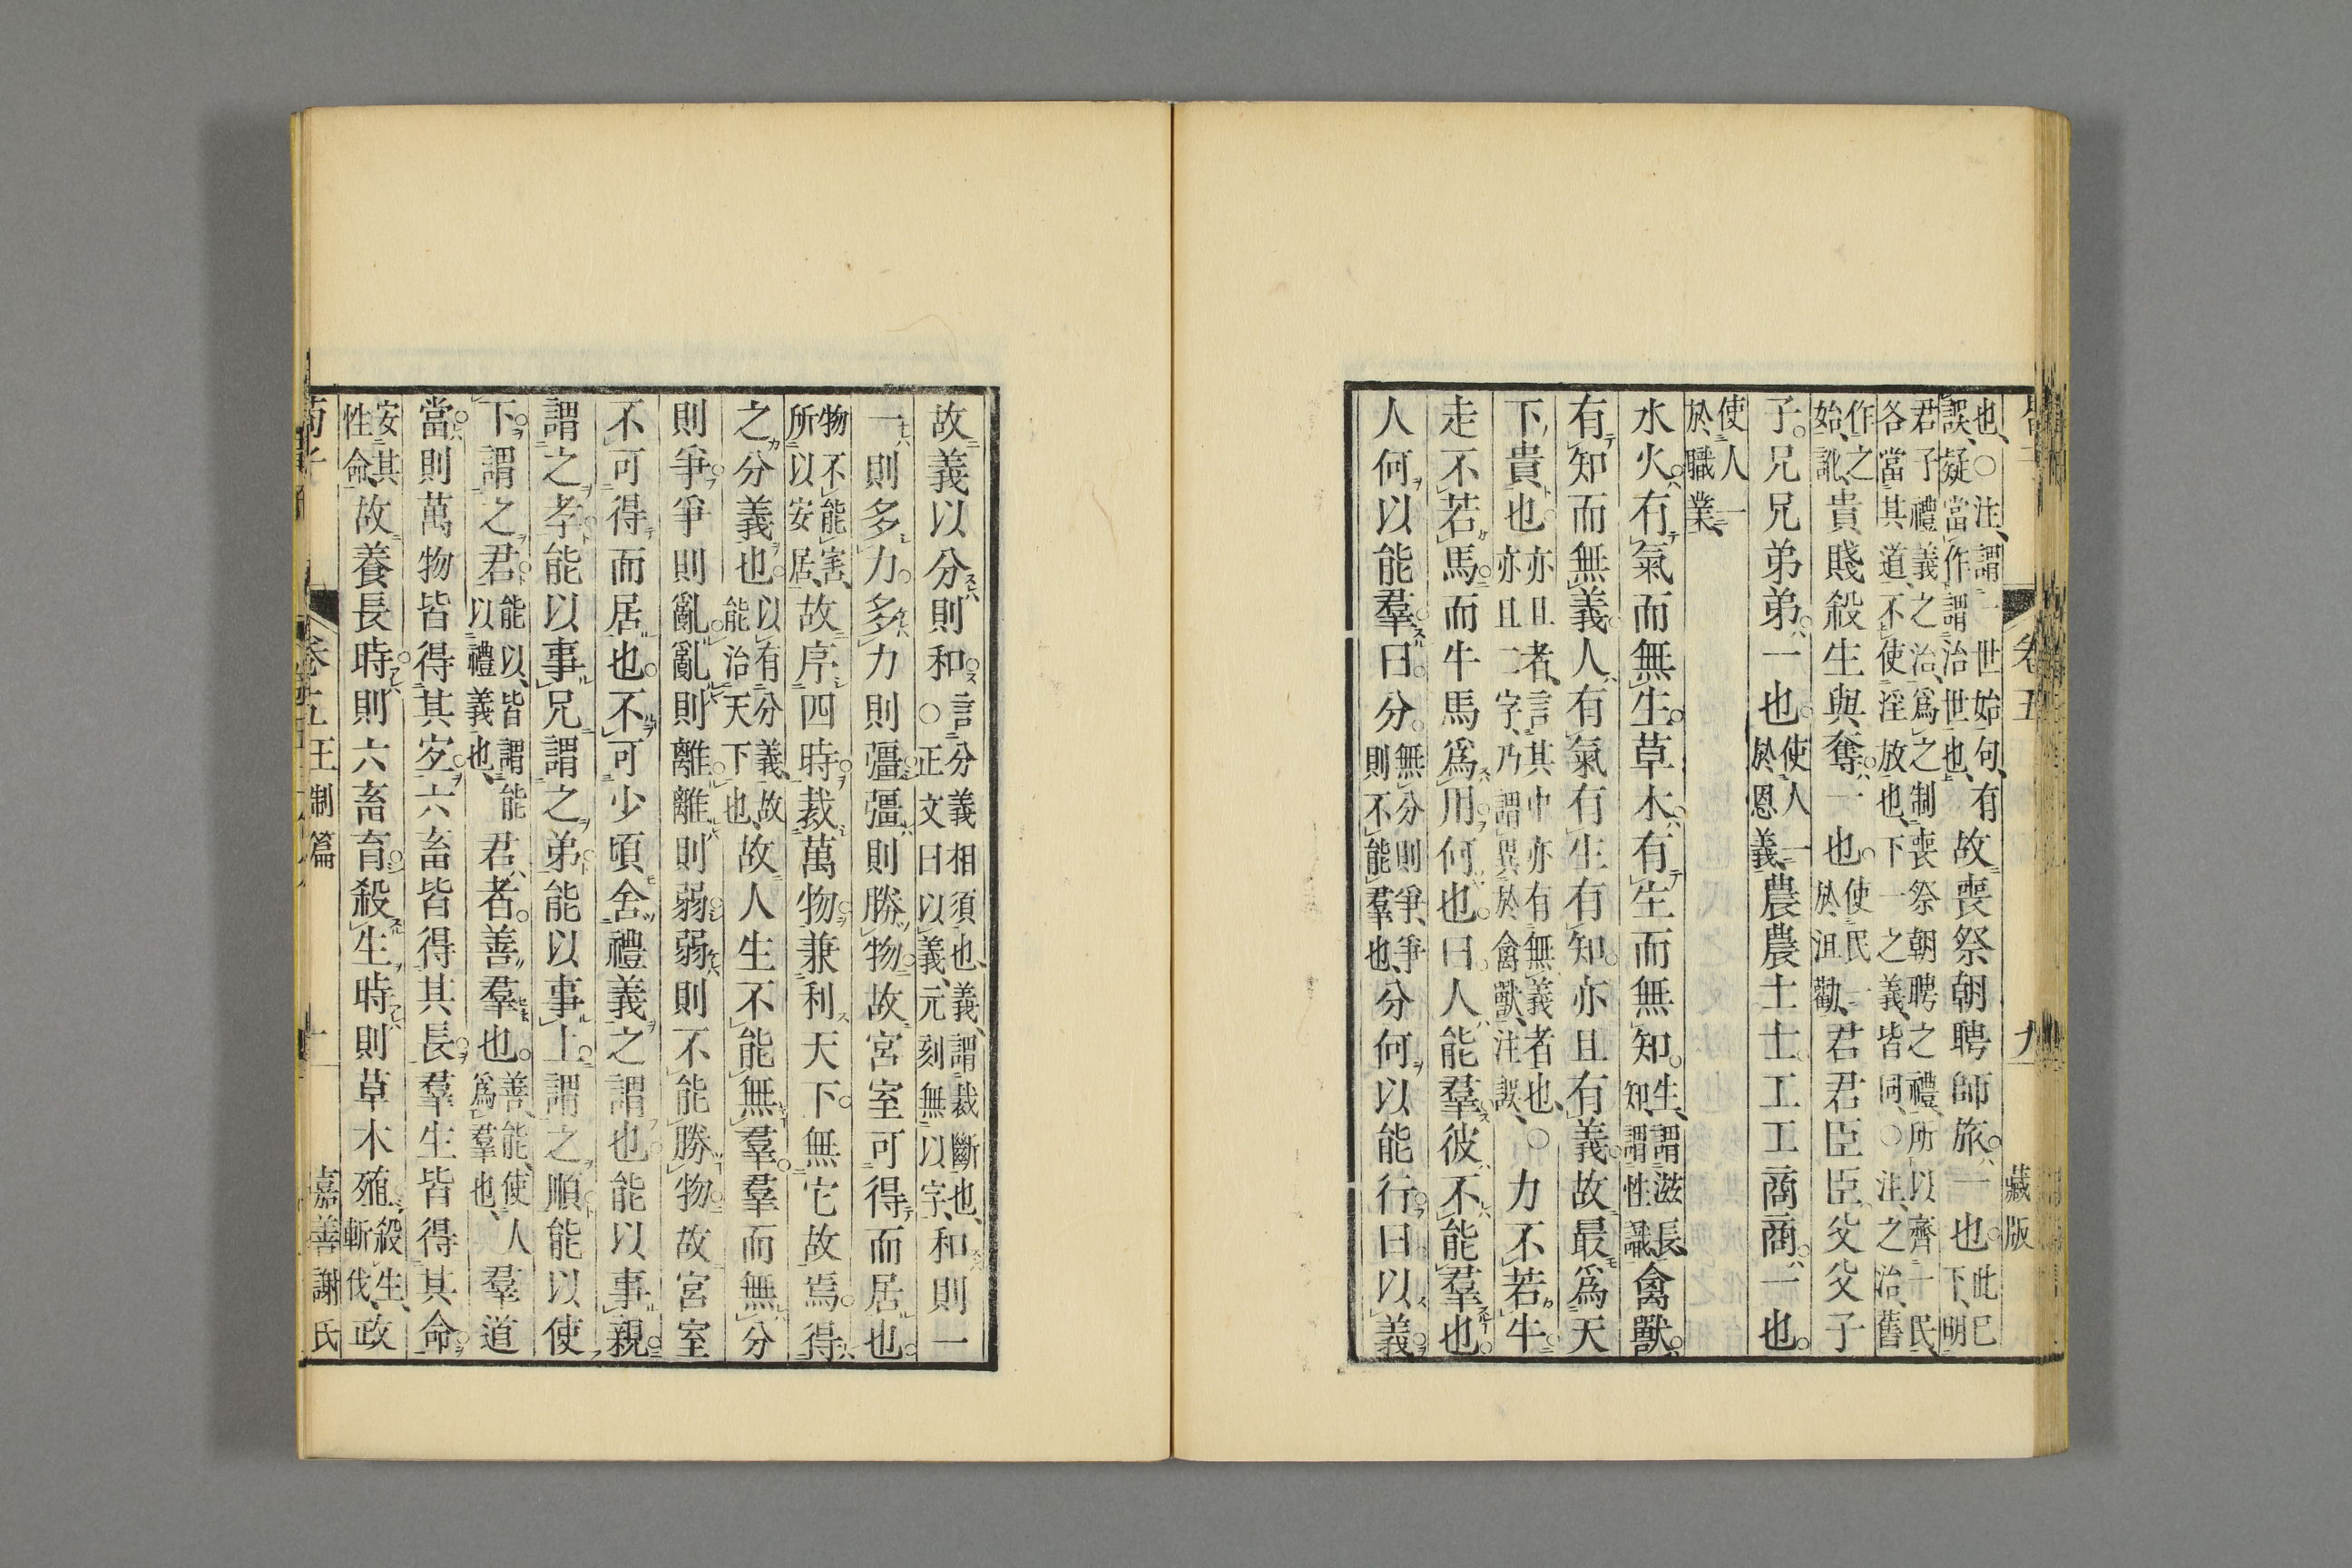 卷五
九
藏版
也、○注、謂一世始句、有
誤、疑當作謂治世也、故喪祭朝聘師旅一也此已下、明
君子禮義之治、爲之制喪祭朝聘之禮、所以齊一民、
各當其道、不使淫放也、下一之義、皆同、○注、之治、舊
作之
始、訛、貴賤殺生與奪一也使民一於沮勸、君君臣臣父父子
子兄兄弟弟一也使人一於恩義、農農士士工工商商一也
使人一
於職業、
水火有氣而無生草木有生而無知生、謂滋長、知、謂性識、禽獸
有知而無義人有氣有生有知亦且有義故最爲天
下貴也亦且者、言其中亦有無義者也、亦且二字、乃謂異於禽獸、注誤、○力不若牛
走不若馬而牛馬爲用何也曰人能羣彼不能羣也
人何以能羣曰分無分則爭、爭則不能羣也、分何以能行曰以義
故義以分則和○言分義相須也、義、謂裁斷也、正文曰以義、元刻無以字、和則一
一則多力多力則彊彊則勝物故宮室可得而居也
物不能害、
所以安居、故序四時裁萬物兼利天下無它故焉得
之分義也以有分義、故能治天下也、故人生不能無羣羣而無分
則爭爭則亂亂則離離則弱弱則不能勝物故宮室
不可得而居也不可少頃舍禮義之謂也能以事親
謂之孝能以事兄謂之弟能以事上謂之順能以使
下謂之君能以、皆謂能以禮義也、君者善羣也善能使人爲羣也、羣道
當則萬物皆得其宐六畜皆得其長羣生皆得其命
安其
性命、故養長時則六畜育殺生時則草木殖殺生、斬伐、政
荀子
卷五王制篇
十
嘉善謝氏